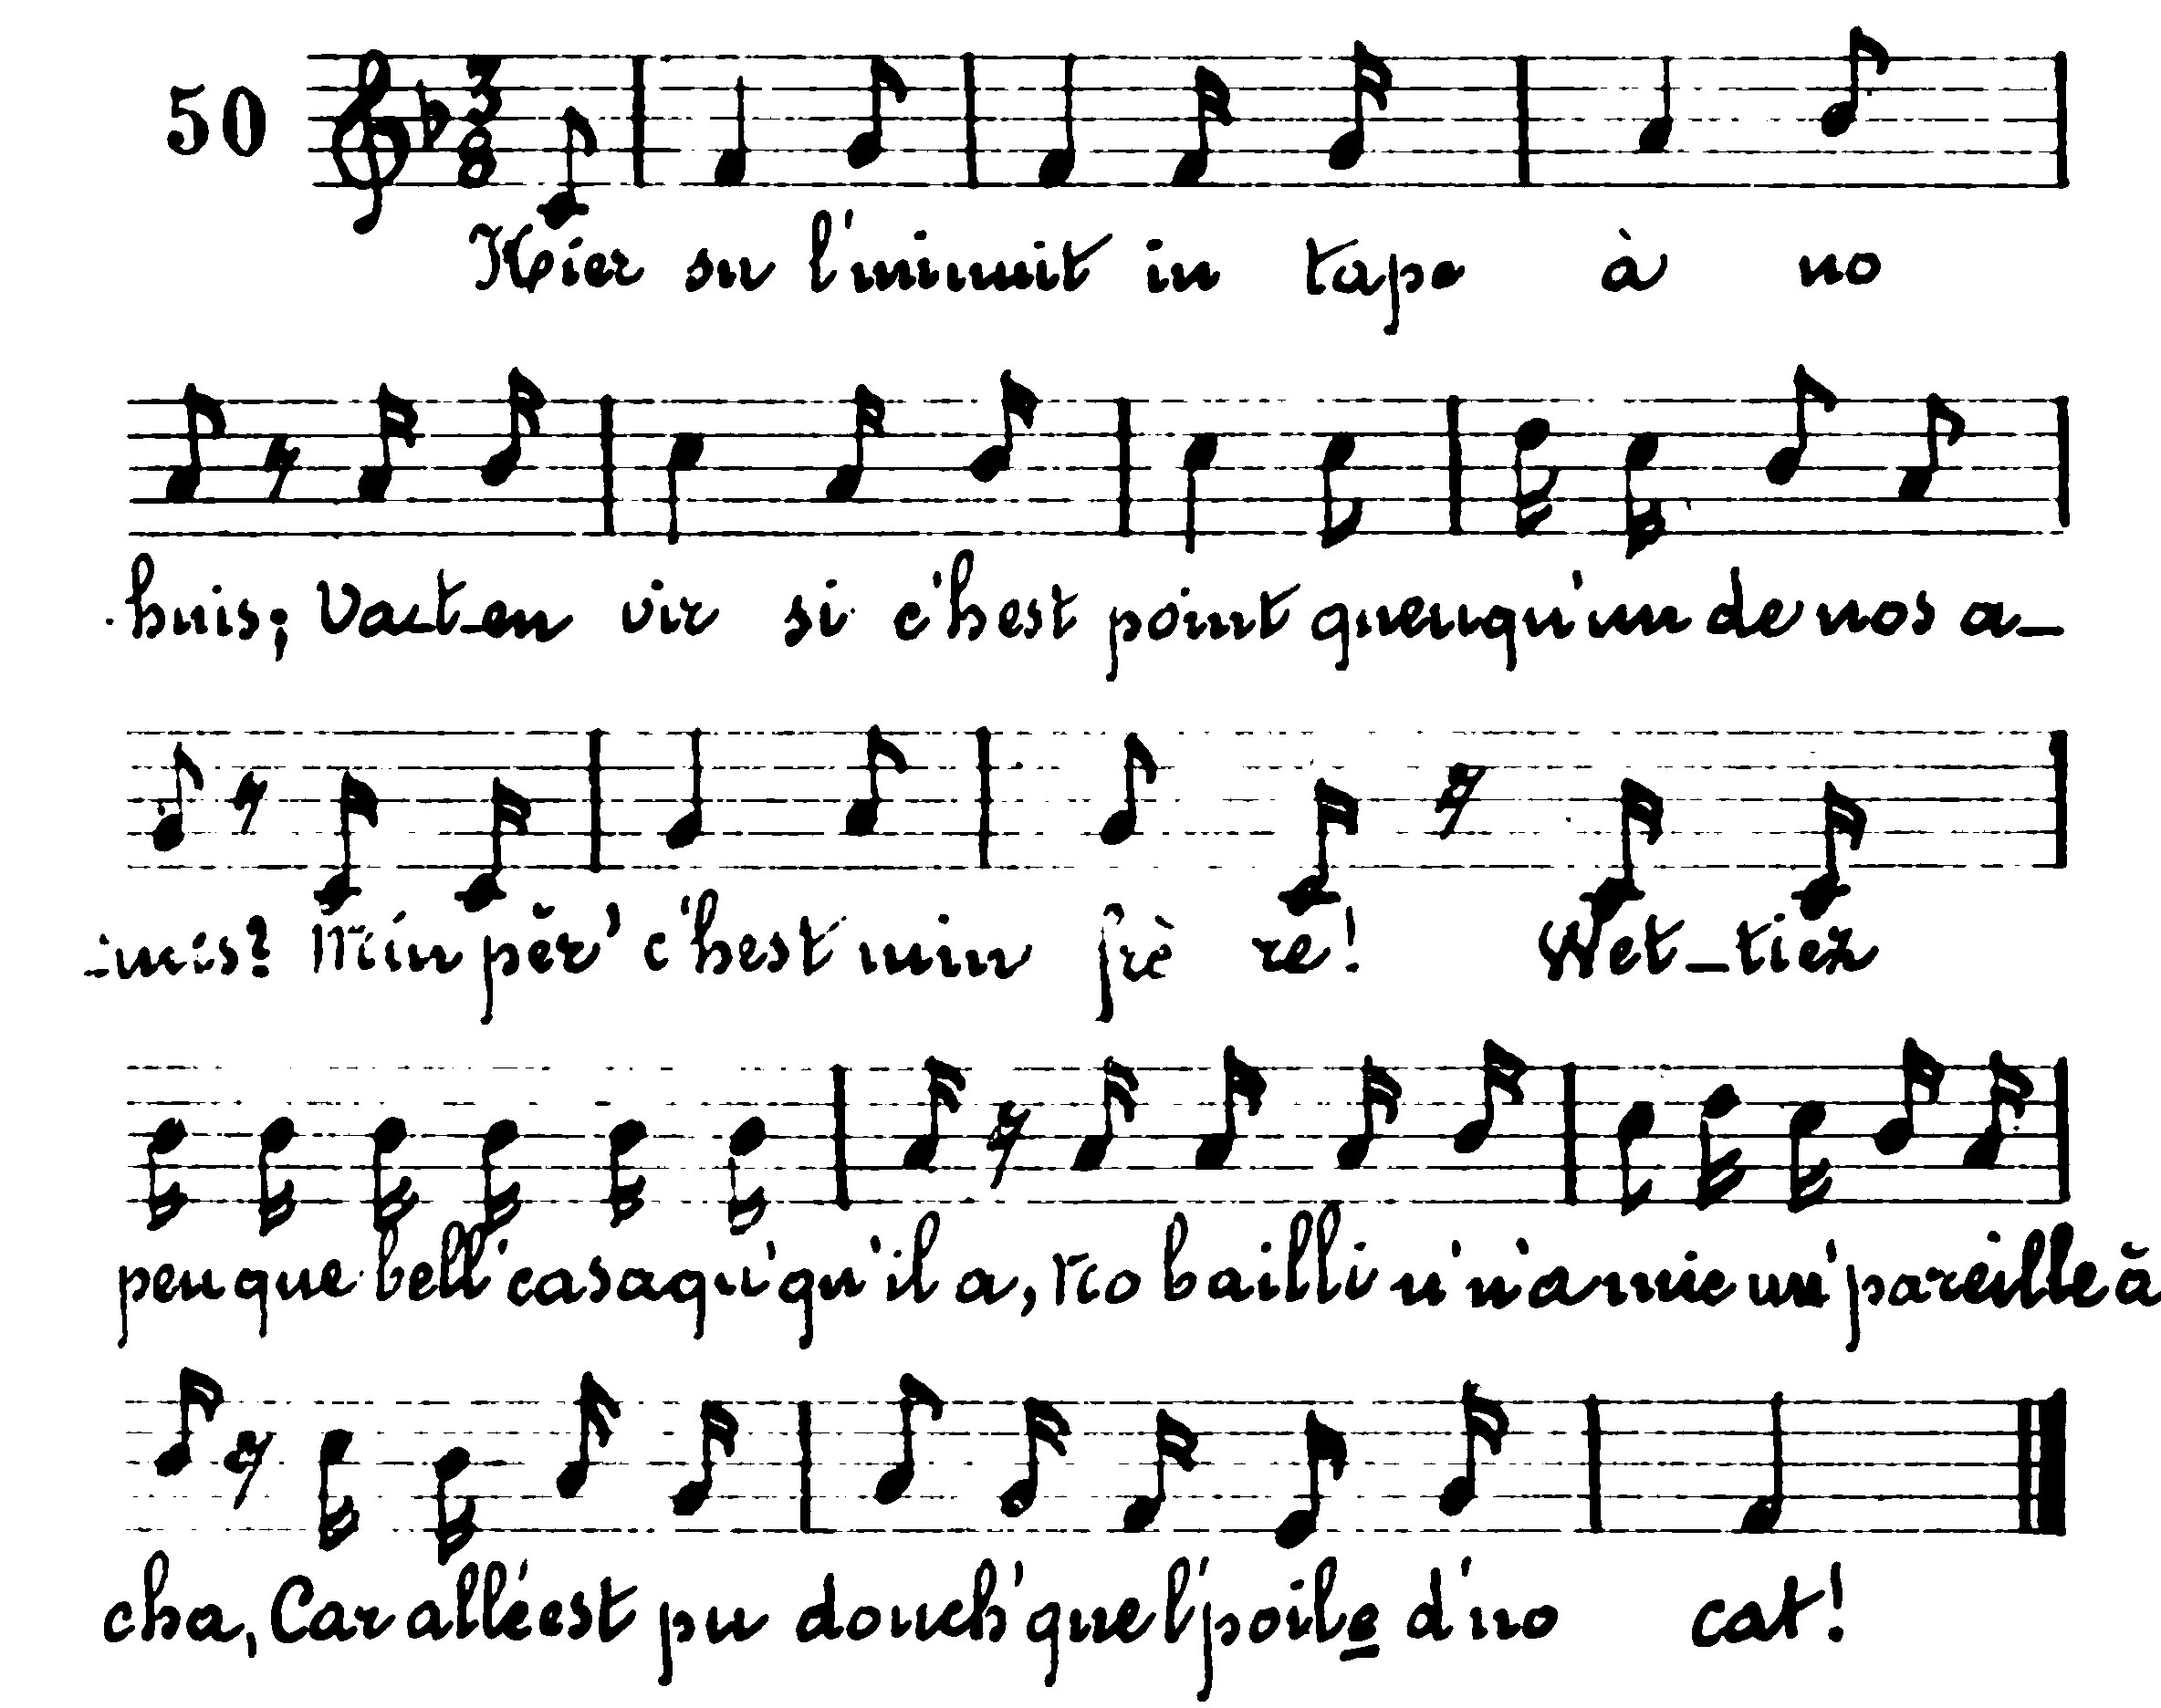 50
3
8
Hier su l'minuit in tape à no
huis; Va-t-en vir si c'hest point queuqu'un de nos a-
-mis? Min pěr' c'hest min frè re! Wet-tiez
peu que bell' casaqu' qu'il a, No bailli n'n'a mie un' pareille à
cha, Car alle est pu douch' que l'poile d'no cat!